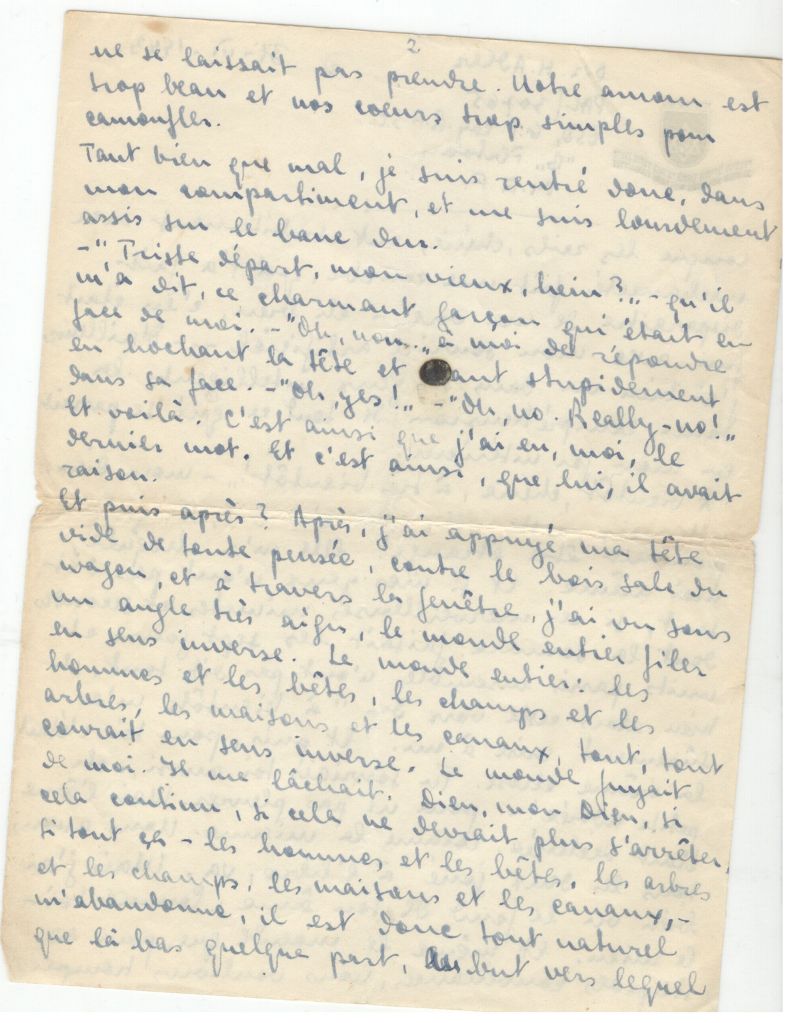 2
ne se laissait pas prendre. Notre amour est
trop beau et nos coeurs trop simples pour
camoufler.
Tant bien que mal, je suis rentré donc, dans
mon compartiment, et me suis lourdement
assis sur le banc dur.
-" Triste départ, mon vieux, hein?„ - qu'il
m'a dit, ce charmant garçon qui était en
face de moi. -"Oh, non..„ à moi de répondre
en hochant la tête et ant stupidement
dans sa face. -"Oh, yes!„ -"Oh, no. Really-no!„
Et voilà. C'est ainsi que j'ai eu, moi, le
dernier mot. Et c'est ainsi, que lui, il avait
raison.
Et puis après? Après, j'ai appuyé ma tête
vide de toute pensée, contre le bois sale du
wagon, et à travers la fenêtre, j'ai vu sous
un angle très aigu, le monde entier filer
en sens inverse. Le monde entier: les
hommes et les bêtes, les champs et les
arbres, les maisons et les canaux, tout, tout
courait en sens inverse. Le monde fuyait
de moi. Il me lâchait. Dieu, mon Dieu, si
cela continu, si cela ne devrait plus s'arrêter,
si tout ça - les hommes et les bêtes, les arbres
et les champs, les maisons et les canaux,-
m'abandonne, il est donc tout naturel
que là bas quelque part, au but vers lequel